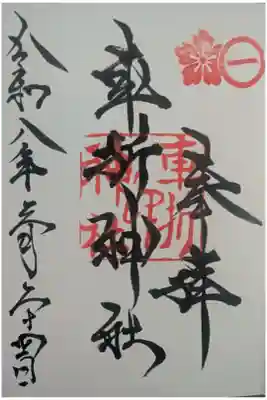 奉拝
車折神社
車折神社
令和八年 月 十四日